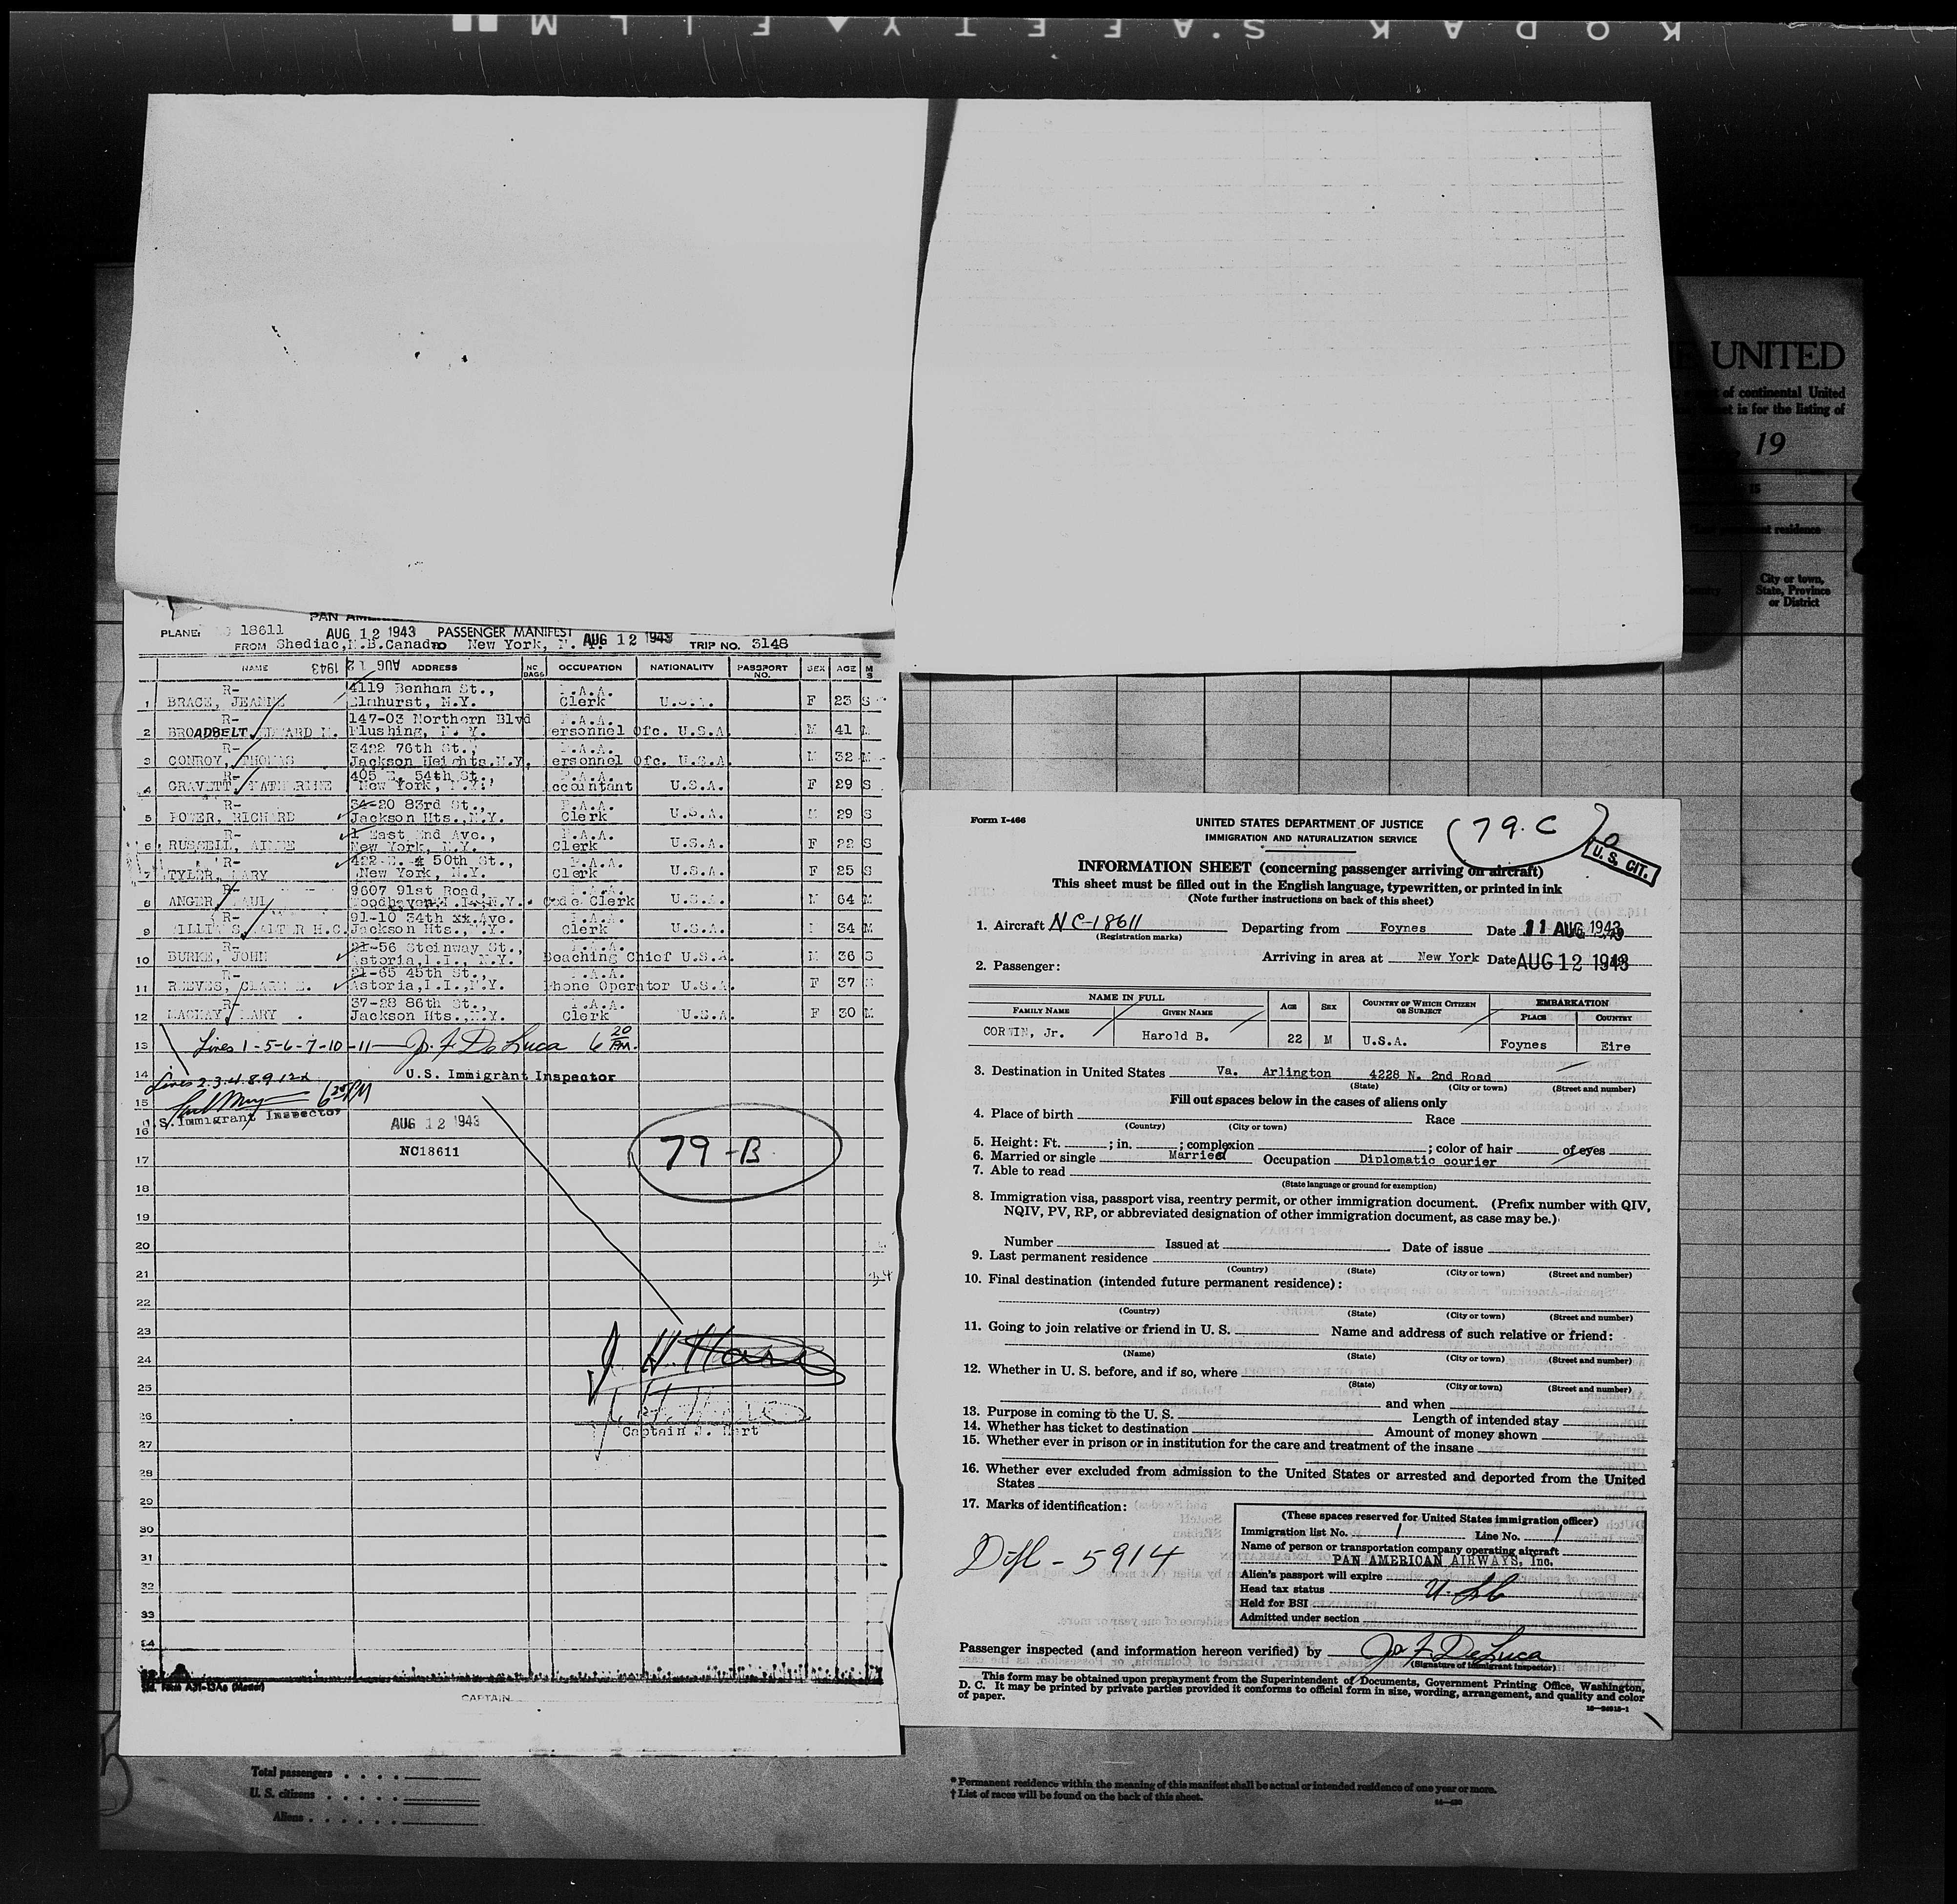 KODAK SAFETY FILM
UNITED
of continental United
is for the listing of
19
residence
City or town,
State, Province
or District
PLANE: 18611
AUG 12 1943 PASSENGER MANIFEST AUG 12 1943
FROM Shediac, N.B. Canada TO New York, N. Y. TRIP NO. 3148
AUG 12 1943
NAME ADDRESS NO BAGS OCCUPATION NATIONALITY PASSPORT NO. SEX AGE M S
R- 4119 Benham St., P.A.A.
1 BRACE, JEANNE Elmhurst, N.Y. Clerk U.S.A. F 23 S
R- 147-03 Northern Blvd P.A.A.
2 BROADBELT, EDWARD M. Flushing, N. Y. Personnel Ofc. U.S.A. M 41 M
R- 3422 76th St., P.A.A.
3 CONROY, THOMAS Jackson Heights, N.Y. Personnel Ofc. U.S.A. M 32 M
R- 405 E. 54th St., P.A.A.
4 GRAVETT, KATHERINE New York, N.Y. Accountant U.S.A. F 29 S
R- 34-20 83rd St., P.A.A.
5 RICHARD Jackson Hts., N.Y. Clerk U.S.A. M 29 S
R- 1 East End Ave., P.A.A.
6 RUSSELL, AIMEE New York, N.Y. Clerk U.S.A. F 22 S
R- 422 E. 50th St., P.A.A.
7 TYLER, MARY New York, N.Y. Clerk U.S.A. F 25 S
R- 9607 91st Road, P.A.A.
8 ANGER, PAUL Woodhaven, L.I., N.Y. Code Clerk U.S.A. M 64 M
R- 91-10 34th xx.Ave. P.A.A.
9 WALTER H.C. Jackson Hts., N.Y. Clerk U.S.A. 34 M
R- 21-56 Steinway St., P.A.A.
10 BURKE, JOHN Astoria, L.I., N.Y. Beaching Chief U.S.A. M 36 S
R- 21-65 45th St., P.A.A.
11 REEVES, CLARE E. Astoria, L.I., N.Y. Phone Operator U.S.A. F 37 S
R- 37-28 86th St., P.A.A.
12 MACKAY, MARY Jackson Hts., N.Y. Clerk U.S.A. F 30 M
13 Lines 1-5-6-7-10-11 — Jo. F. De Luca 6 20 PM.
14 U.S. Immigrant Inspector
Lines 2.3.4.8.9.12
15 6 25 PM
U.S. Immigrant Inspector
16 AUG 12 1943
17 NC18611 79-B
18
19
20
21
22
23
24 J. H. Hart
25
26
Captain J. Hart
27
28
29
30
31
32
33
34
CAPTAIN
Total passengers
U. S. citizens
Aliens
Form I-466
UNITED STATES DEPARTMENT OF JUSTICE
IMMIGRATION AND NATURALIZATION SERVICE
79.C
U. S. CIT.
INFORMATION SHEET (concerning passenger arriving on aircraft)
This sheet must be filled out in the English language, typewritten, or printed in ink
(Note further instructions on back of this sheet)
1. Aircraft NC-18611 Departing from Foynes Date 11 AUG 1943
(Registration marks)
Arriving in area at New York Date AUG 12 1943
2. Passenger:
NAME IN FULL AGE SEX COUNTRY OF WHICH CITIZEN OR SUBJECT EMBARKATION
FAMILY NAME GIVEN NAME PLACE COUNTRY
CORWIN, Jr. Harold B. 22 M U.S.A. Foynes Eire
3. Destination in United States Va. Arlington 4228 N. 2nd Road
(State) (City or town) (Street and number)
Fill out spaces below in the cases of aliens only
4. Place of birth Race
(Country) (City or town)
5. Height: Ft. ; in. ; complexion ; color of hair of eyes
6. Married or single Married Occupation Diplomatic courier
7. Able to read
(State language or ground for exemption)
8. Immigration visa, passport visa, reentry permit, or other immigration document. (Prefix number with QIV,
NQIV, PV, RP, or abbreviated designation of other immigration document, as case may be.)
Number Issued at Date of issue
9. Last permanent residence
(Country) (State) (City or town) (Street and number)
10. Final destination (intended future permanent residence):
(Country) (State) (City or town) (Street and number)
11. Going to join relative or friend in U. S. Name and address of such relative or friend:
(Name) (State) (City or town) (Street and number)
12. Whether in U. S. before, and if so, where
(State) (City or town) (Street and number)
and when
13. Purpose in coming to the U. S. Length of intended stay
14. Whether has ticket to destination Amount of money shown
15. Whether ever in prison or in institution for the care and treatment of the insane
16. Whether ever excluded from admission to the United States or arrested and deported from the United
States
17. Marks of identification:
Dipl - 5914
(These spaces reserved for United States immigration officer)
Immigration list No. 1 Line No. 1
Name of person or transportation company operating aircraft
PAN AMERICAN AIRWAYS, Inc.
Alien's passport will expire
Head tax status
Held for BSI
Admitted under section
Passenger inspected (and information hereon verified) by Jo. F. De Luca
(Signature of immigrant inspector)
This form may be obtained upon prepayment from the Superintendent of Documents, Government Printing Office, Washington,
D. C. It may be printed by private parties provided it conforms to official form in size, wording, arrangement, and quality and color
of paper.
* Permanent residence within the meaning of this manifest shall be actual or intended residence of one year or more.
† List of races will be found on the back of this sheet.